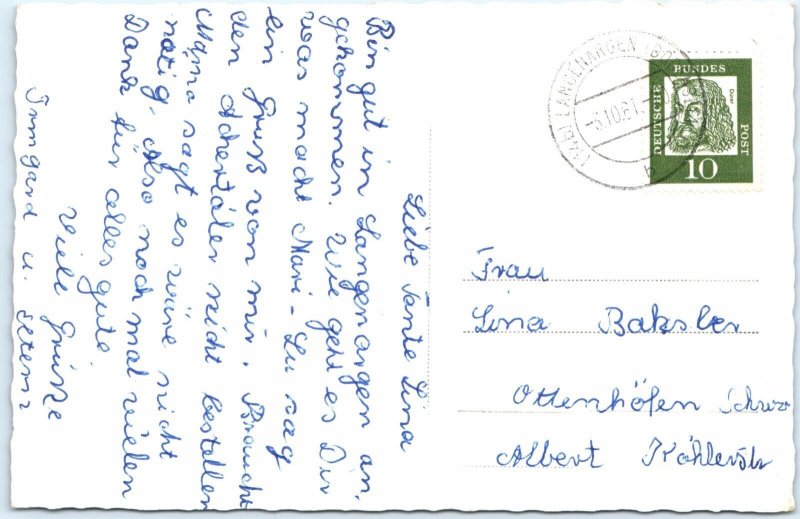 Liebe Tante Lina
Bin gut in Langenargen an,
gekommen. Wie geht es Dir
was macht Mari-Lu sag
ein Gruß von mir. Brauchst
den Achertäler nicht bestellen
Mama sagt es wäre nicht
nötig. Also noch mal vielen
Dank für alles gute
Viele Grüße
Irmgard u. Eltern
LANGENARGEN
-5.10.61.
DEUTSCHE
BUNDES
POST
Dürer
10
Frau
Lina Baksler
Ottenhöfen Schwa
Albert Köhlerstr